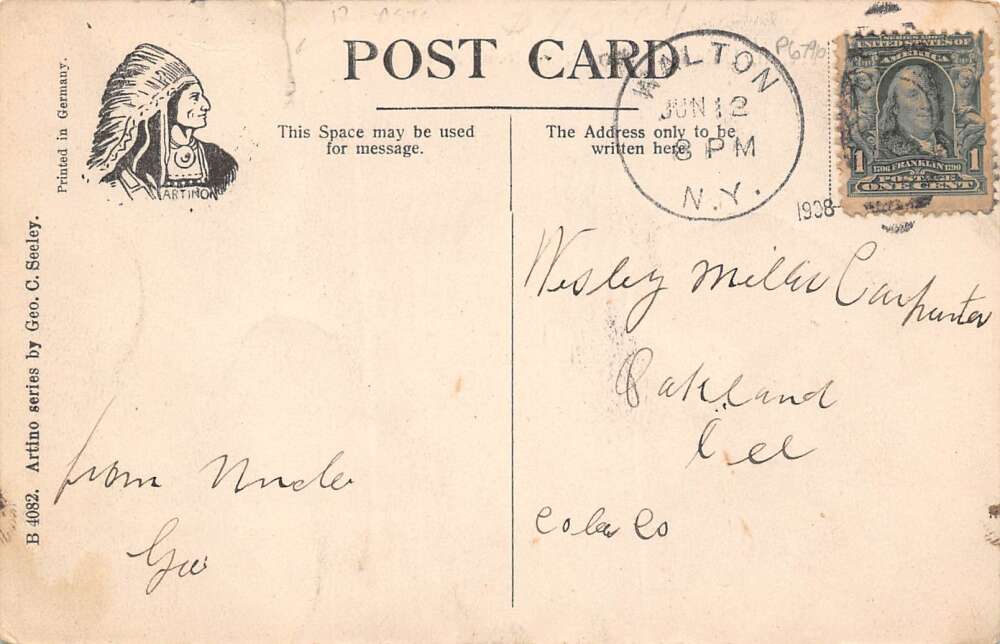 POST CARD
Printed in Germany.
ARTINO
B 4082. Artino series by Geo. C. Seeley.
This Space may be used
for message.
The Address only to be
written here.
WALTON
JUN 12
8 PM
N.Y.
1908
SERIES 1902
UNITED STATES OF
AMERICA
1 1706 FRANKLIN 1790 1
POSTAGE
ONE CENT
from Uncle
Geo
Wesley Miller Carpenter
Oakland
Cola Co